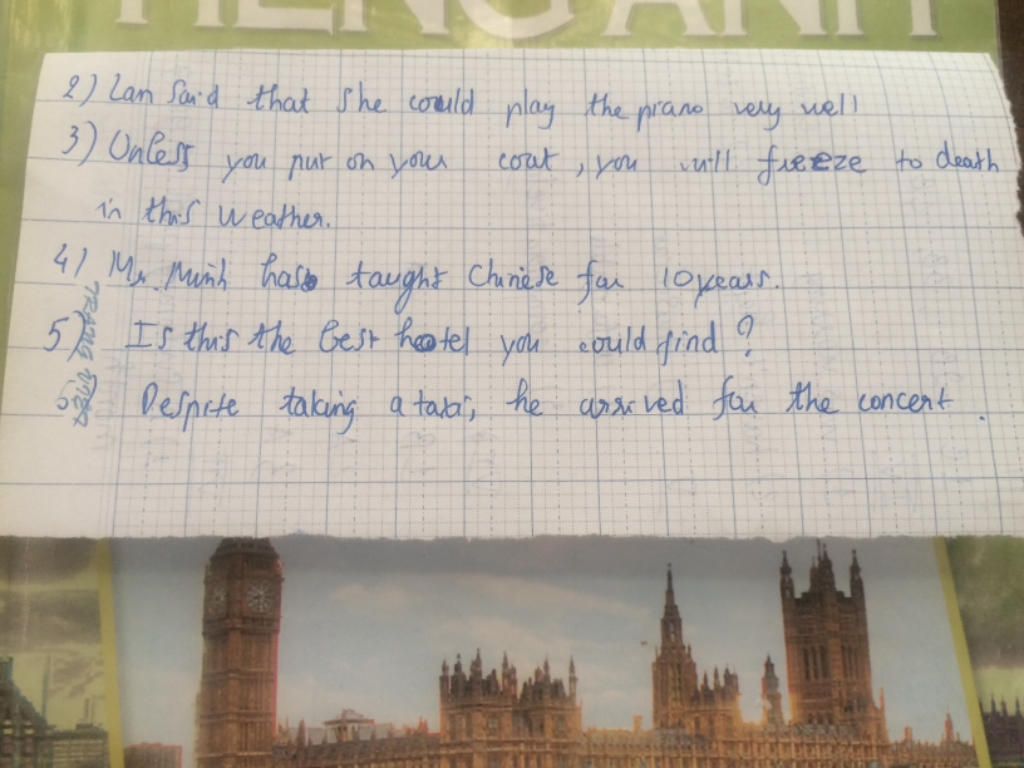 TIENG ANH
2) Lan said that she could play the piano very well
3) Unless you put on your coat, you will freeze to death
in this weather.
4) Mr. Minh has taught Chinese for 10 years.
5) Is this the best hotel you could find?
Despite taking a taxi, he arrived for the concert.
TRANG